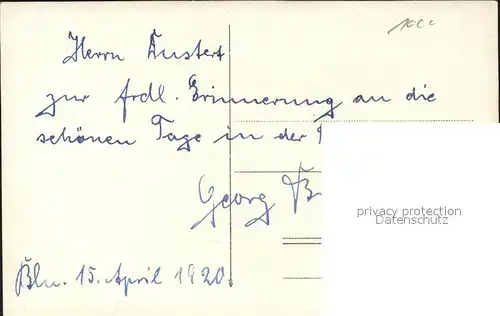 Herrn Dustert
zur frdl. Erinnerung an die
schönen Tage in der
Georg B
privacy protection
Datenschutz
Bln. 15. April 1920